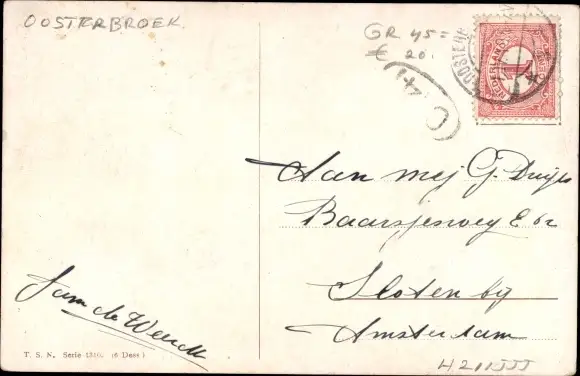 OOSTERBROEK
GR 45=
€ 20.
OOSTERB
NEDERLAND
1
Aan mej G. Duijs
Baarsjesweg E 62
Sloten bij
Amsterdam
Jam de Weerdt
T. S. N. Serie 1310. (6 Dess)